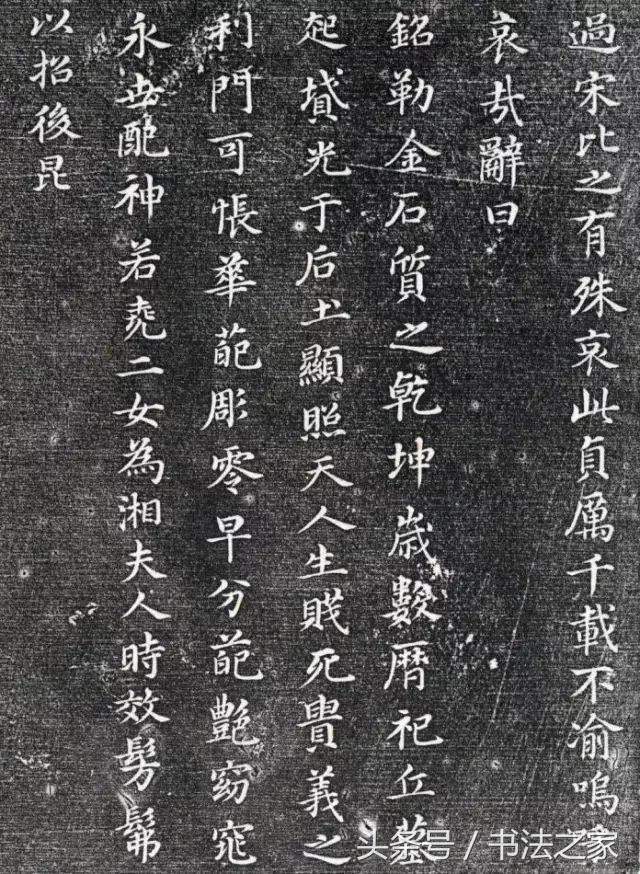 過宋比之有殊哀此貞厲千載不渝嗚
哀哉辭曰
銘勒金石質之乾坤歲數暦祀丘墓
起墳光于后土顯照天人生賎死貴義之
利門何悵華葩彫零早分葩艷窈窕
永世配神若堯二女為湘夫人時效髣髴
以招後昆
头条号 / 书法之家